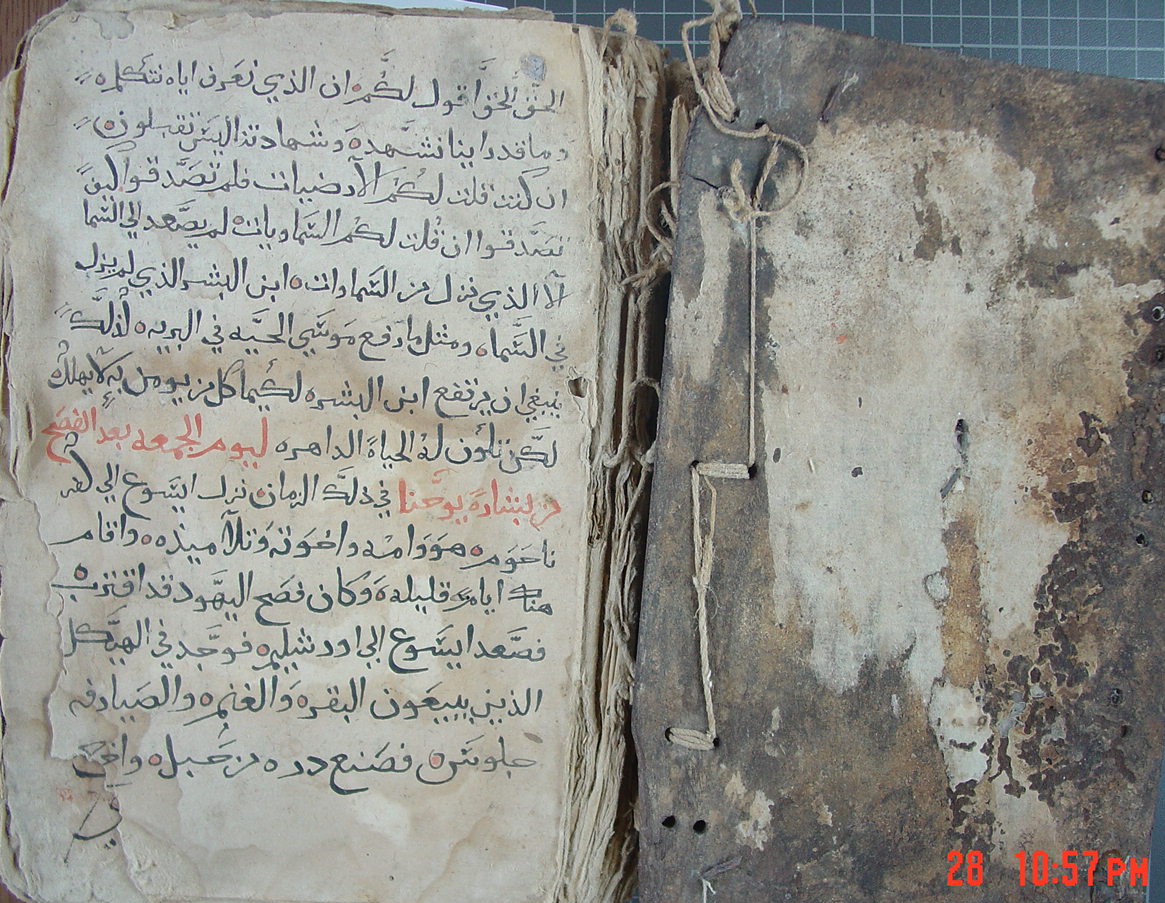 الحق الحق اقول لكم ان الذي نعرف اياه نتكلم
وما قد راينا نشهد وشهادتنا ليس تقبلون
ان كنت قلت لكم الارضيات فلم تصدقوا كيف
تصدقوا ان قلت لكم السماويات لم يصعد الي السما
الا الذي نزل من السماوات ابن البشر الذي لم يزل
في السما ومثل ما رفع موسي الحيه في البريه كذلك
ينبغي ان يرتفع ابن البشر لكيما كل من يومن به لا يهلك
لكن تكون له الحياة الداهره ليوم الجمعه بعد الفصح
من بشارة يوحنا في ذلك الزمان نزل ايسوع الي كفر
ناحوم هو وامه واخوته وتلاميذه واقام
هناك ايام قليله وكان فصح اليهود قد اقترب
فصعد ايسوع الي اورشليم فوجد في الهيكل
الذين يبيعون البقر والغنم والصيارفه
جلوس فصنع دره من حبل واخرج
28 10:57PM